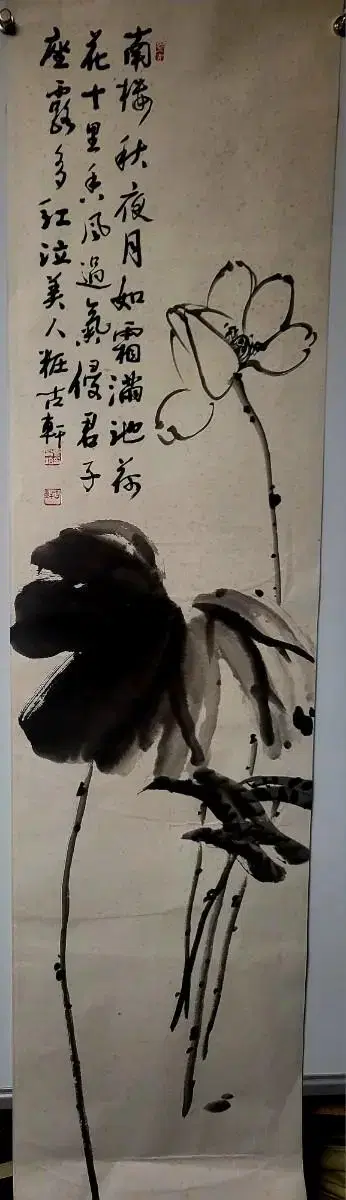 南樓秋夜月如霜滿池荷
花十里香風過氣侵君子
座露多紅泣美人粧古軒